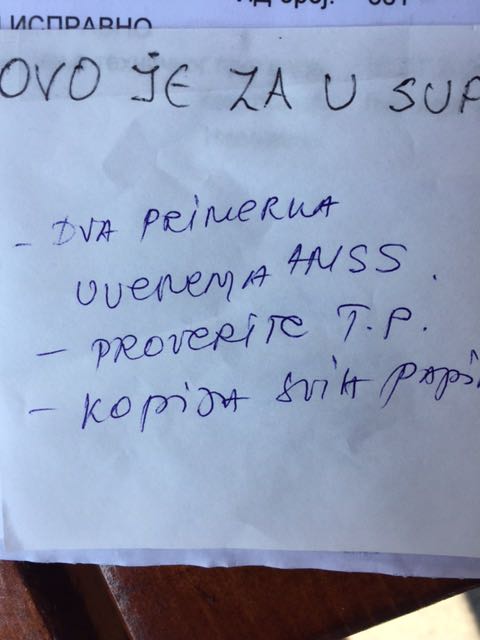 ИСПРАВНО
OVO JE ZA U SUP
- DVA PRIMERKA
UVERENJA AMSS.
- PROVERITE T.P.
- KOPIJA SVIH PAPI